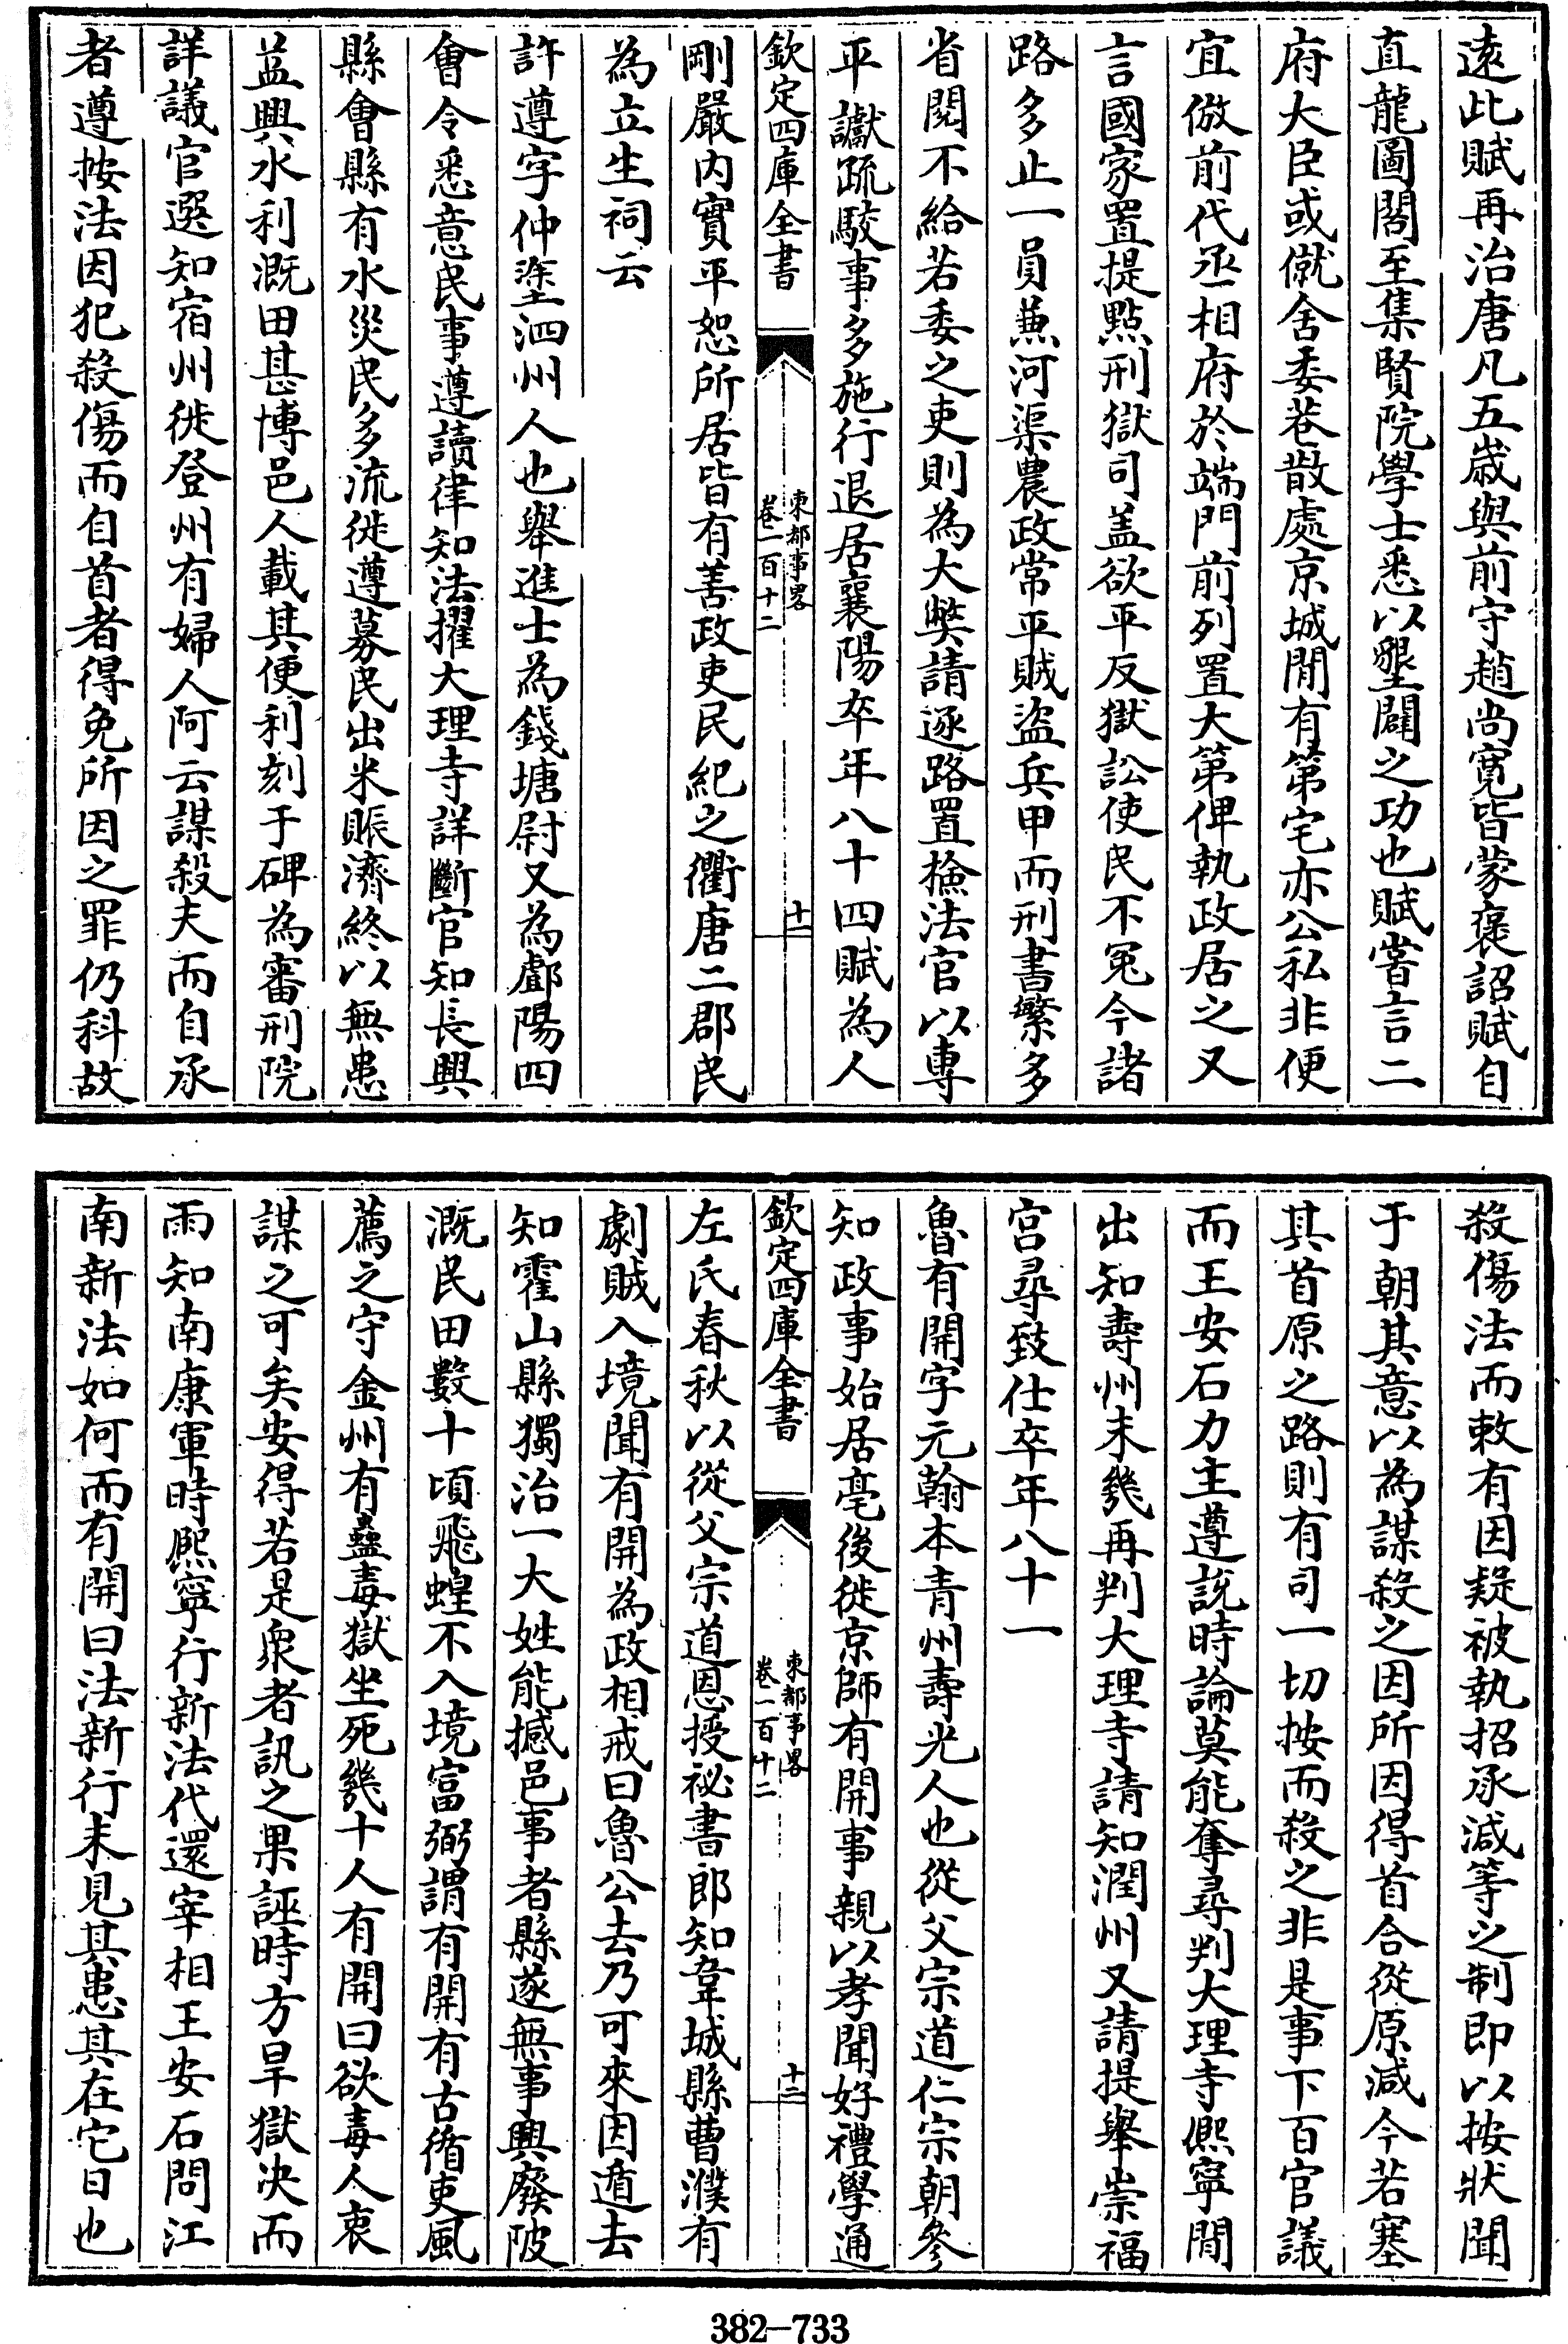 遠此賦再治唐凡五嵗與前守趙尚寛皆蒙襃詔賦自
直龍圖閣至集賢院學士悉以墾闢之功也賦嘗言二
府大臣或僦舍委巷散處京城間有第宅亦公私非便
宜倣前代丞相府於端門前列置大第俾執政居之又
言國家置提點刑獄司盖欲平反獄訟使民不冤今諸
路多止一員兼河渠農政常平賊盜兵甲而刑書繁多
省閱不給若委之吏則為大弊請逐路置檢法官以專
平讞疏駮事多施行退居襄陽卒年八十四賦為人
欽定四庫全書
東都事畧
卷一百十二
十一
剛嚴内實平恕所居皆有善政吏民紀之衢唐二郡民
為立生祠云
許遵字仲塗泗州人也舉進士為錢塘尉又為酇陽四
會令悉意民事遵讀律知法擢大理寺詳斷官知長興
縣會縣有水災民多流徙遵募民出米賑濟終以無患
益興水利溉田甚博邑人載其便利刻于碑為審刑院
詳議官選知宿州徙登州有婦人阿云謀殺夫而自承
者遵按法因犯殺傷而自首者得免所因之罪仍科故
殺傷法而敕有因疑被執招承減等之制即以按狀聞
于朝其意以為謀殺之因所因得首合從原減今若塞
其首原之路則有司一切按而殺之非是事下百官議
而王安石力主遵說時論莫能奪尋判大理寺熈寧間
出知壽州未幾再判大理寺請知潤州又請提舉崇福
宫尋致仕卒年八十一
魯有開字元翰本青州壽光人也從父宗道仁宗朝參
知政事始居亳後徙京師有開事親以孝聞好禮學通
欽定四庫全書
東都事畧
卷一百十二
十二
左氏春秋以從父宗道恩授祕書郎知韋城縣曹濮有
劇賊入境聞有開為政相戒曰魯公去乃可來因遁去
知霍山縣獨治一大姓能撼邑事者縣遂無事興廢陂
溉民田數十頃飛蝗不入境富弼謂有開有古循吏風
薦之守金州有蠱毒獄坐死幾十人有開曰欲毒人衷
謀之可矣安得若是衆者訊之果誣時方旱獄决而
雨知南康軍時熈寧行新法代還宰相王安石問江
南新法如何而有開曰法新行未見其患其在它日也
382-733